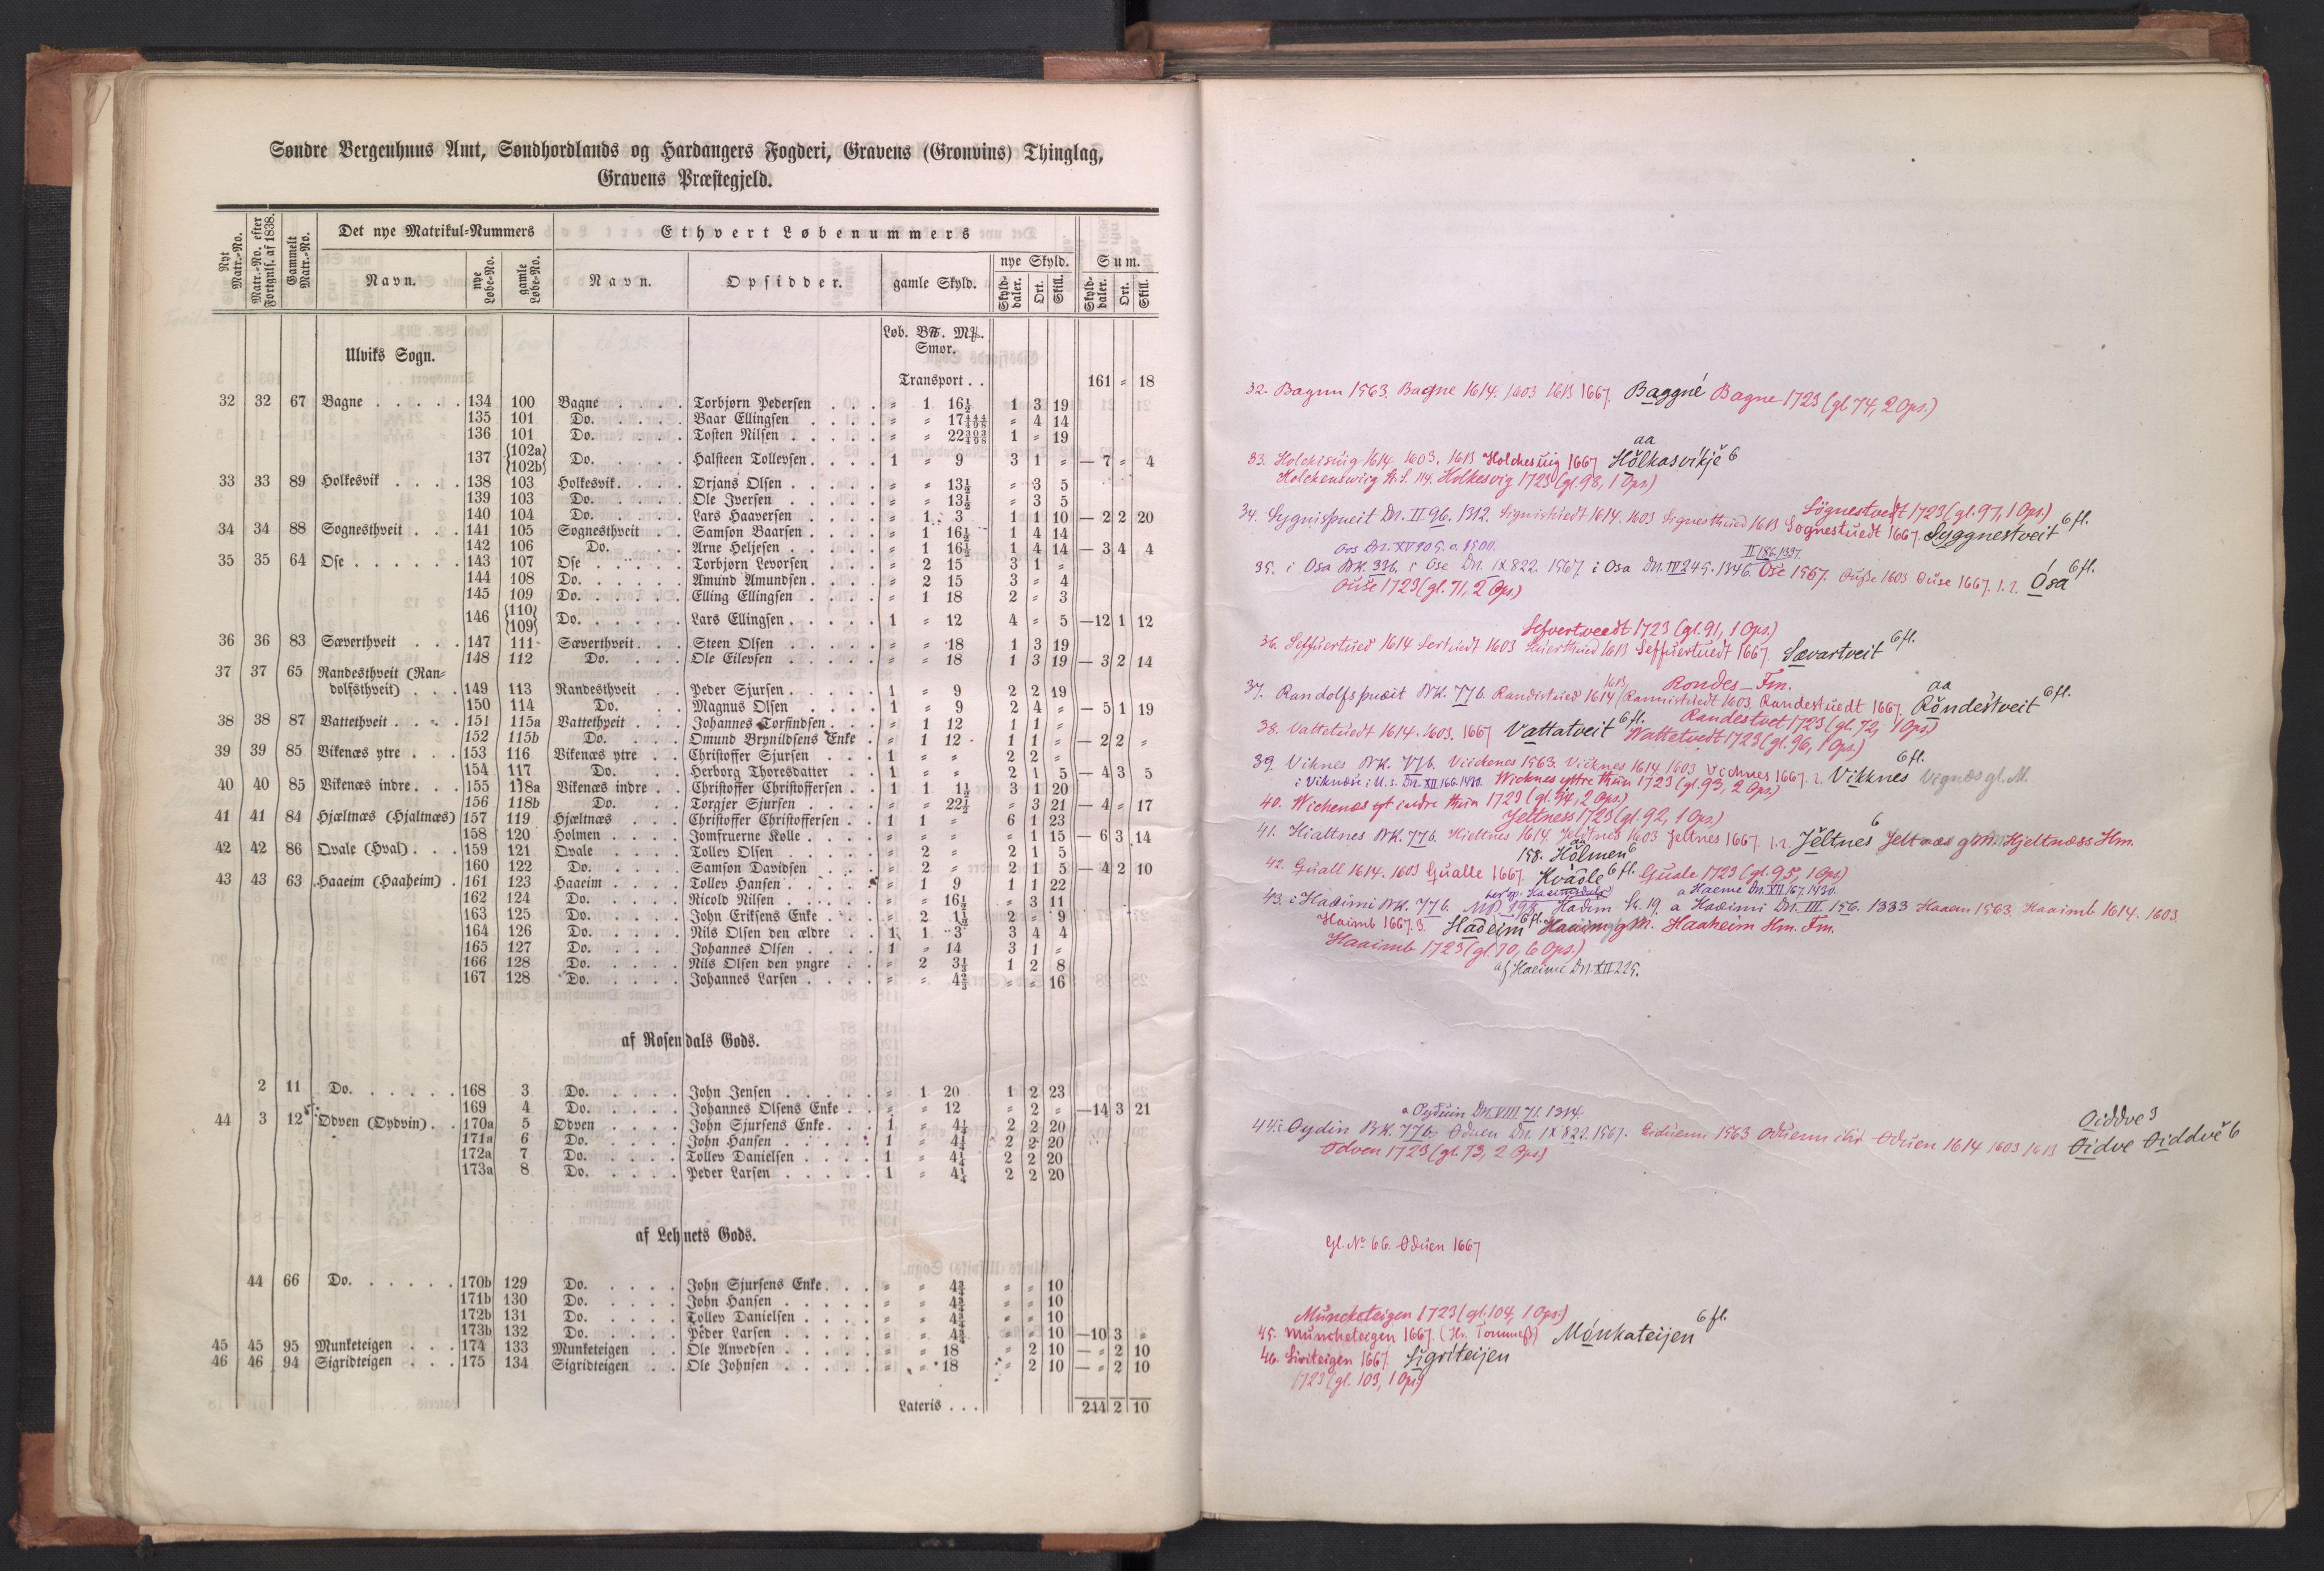 Søndre Bergenhuus Amt, Søndhordlands og Hardangers Fogderi, Gravens (Gronvins) Thinglag,
Gravens Præstegjeld.
Nyt Matr.-No. | Matr.-No. efter Fortgnls. af 1838. | Gammelt Matr.-No. | Det nye Matrikul-Nummers | Ethvert Løbenummers
Navn. | nye Løbe-No. | gamle Løbe-No. | Navn. | Opsidder. | gamle Skyld. | nye Skyld. | Sum.
Skylddaler. Ort. Skill. | Skylddaler. Ort. Skill.
Ulviks Sogn.
Smør.
Transport . . 161 " 18
32 32 67 Bagne . . . . . 134 100 Bagne . . . . Torbjørn Pedersen . . . " 1 16½ 1 3 19
135 101 Do. . . . . Baar Ellingsen . . . . " " " 4 14
136 101 Do. . . . . Tosten Nilsen . . . . . " " 1 " 19
137 {102a} {102b} Do. . . . . Halsteen Tollevsen . . . . 1 " 9 3 1 " — 7 " 4
33 33 89 Holkesvik . . . . 138 103 Holkesvik . . . Orjans Olsen . . . . . . " " 13½ " 3 5
139 103 Do. . . . . Ole Iversen . . . . . " " 13½ " 3 5
140 104 Do. . . . . Lars Haaversen . . . . " 1 3 1 1 10 — 2 2 20
34 34 88 Sognesthveit . . . 141 105 Sognesthveit . . Samson Baarsen . . . . " 1 16½ 1 4 14
142 106 Do. . . Arne Heljesen . . . . . " 1 16½ 1 4 14 — 3 4 4
35 35 64 Ose . . . . . . 143 107 Ose . . . . . Torbjørn Levorsen . . . " 2 15 3 1 "
144 108 Do. . . . . . Amund Amundsen . . . . " 2 15 3 " 4
145 109 Do. . . . . . Elling Ellingsen . . . . " 1 18 2 " 3
146 {110} {109} Do. . . . . . Lars Ellingsen . . . . . 1 " 12 4 " 5 — 12 1 12
36 36 83 Sæverthveit . . . 147 111 Sæverthveit . . . Steen Olsen . . . . . . " " 18 1 3 19
148 112 Do. . . . Ole Eilevsen . . . . . " " 18 1 3 19 — 3 2 14
37 37 65 Randesthveit (Ran-
dolfsthveit) . . . 149 113 Randesthveit . . Peder Sjursen . . . . . 1 " 9 2 2 19
150 114 Do. . . Magnus Olsen . . . . 1 " 9 2 4 " — 5 1 19
38 38 87 Vattethveit . . . . 151 115a Vattethveit . . . Johannes Torfindsen . . . " 1 12 1 1 "
152 115b Do. . . . Omund Brynildsens Enke . " 1 12 1 1 " — 2 2 "
39 39 85 Vikenæs ytre . . . 153 116 Vikenæs ytre . . Christoffer Sjursen . . . 1 " " 2 2 "
154 117 Do. . . Herborg Thoresdatter . . 1 " " 2 1 5 — 4 3 5
40 40 85 Vikenæs indre . . . 155 118a Vikenæs indre . . Christoffer Christoffersen . . 1 1 1½ 3 1 20
156 118b Do. . . Torgjer Sjursen . . . . " " 22½ " 3 21 — 4 " 17
41 41 84 Hjæltnæs (Hjaltnæs) 157 119 Hjæltnæs . . . Christoffer Christoffersen . . 1 1 " 6 1 23
158 120 Holmen . . . . Jomfruerne Kolle . . . . " " " " 1 15 — 6 3 14
42 42 86 Qvale (Hval) . . . 159 121 Qvale . . . . Tollev Olsen . . . . . " 2 " 2 1 5
160 122 Do. . . . . Samson Davidsen . . . " 2 " 2 1 5 — 4 2 10
43 43 63 Haaeim (Haaheim) . 161 123 Haaeim . . . . Tollev Hansen . . . . . " 1 9 1 1 22
162 124 Do. . . . . Nicold Nilsen . . . . . " " 16½ " 3 11
163 125 Do. . . . . John Eriksens Enke . . . " 2 1½ 2 " 9
164 126 Do. . . . . Nils Olsen den ældre . . 1 1 3 3 4 4
165 127 Do. . . . . Johannes Olsen . . . . 1 " 14 3 1 "
166 128 Do. . . . . Nils Olsen den yngre . . " 2 3⅓ 1 2 8
167 128 Do. . . . . Johannes Larsen . . . . " " 4⅔ " " 16
af Rosendals Gods.
2 11 Do. . . . . . 168 3 Do. . . . . John Jensen . . . . . . " 1 20 1 2 23
169 4 Do. . . . . Johannes Olsens Enke . . " " 12 " 2 " — 14 3 21
44 3 12 Odven (Oydvin) . . 170a 5 Odven . . . . John Sjursens Enke . . . 1 " 4¼ 2 2 20
171a 6 Do. . . . . John Hansen . . . . . 1 " 4¼ 2 2 20
172a 7 Do. . . . . Tollev Danielsen . . . . 1 " 4¼ 2 2 20
173a 8 Do. . . . . Peder Larsen . . . . . 1 " 4¼ 2 2 20
af Lehnets Gods.
44 66 Do. . . . . . 170b 129 Do. . . . . John Sjursens Enke . . . " " 4¾ " " 10
171b 130 Do. . . . . John Hansen . . . . . " " 4¾ " " 10
172b 131 Do. . . . . Tollev Danielsen . . . . " " 4¾ " " 10
173b 132 Do. . . . . Peder Larsen . . . . . " " 4¾ " " 10 — 10 3 "
45 45 95 Munketeigen . . . 174 133 Munketeigen . . Ole Anvedsen . . . . . " " 18 " 2 10 — " 2 10
46 46 94 Sigridteigen . . . 175 134 Sigridteigen . . Ole Johnsen . . . . . . " " 18 " 2 10 — " 2 10
Lateris . . . 244 2 10
32. Bagnn 1563. Bagne 1614. 1603 1613 1667. Baggne Bagne 1723 (gl. 74, 2 Ops.)
aa
33. Holckisuig 1614. 1603. 1613 Holchesuig 1667 Hölkasvikje 6
Holckenswiig St. S. 114. Holkesvig 1723 (gl. 98, 1 Ops.)
Sögnestvedt 1723 (gl. 97, 1 Ops.)
34. Sygnisþueit Dn. II 96. 1312. Signistuedt 1614. 1603 Signesthued 1613 Sognestuedt 1667. Syggnestveit 6 fl.
Oos Dn. XV 105. a. 1500.
II 186. 1337.
35. i Osa BK. 33b. i Ose Dn. IX 822. 1567. i Osa Dn. IV 245. 1346. Ose 1567. Ousse 1603 Ouse 1667. 1.2. Ósa 6 fl.
Ouse 1723 (gl. 71, 2 Ops.)
Sefvertveedt 1723 (gl. 91, 1 Ops.)
36. Seffuertued 1614 Sertuedt 1603 Suerthued 1613 Seffuertuedt 1667. Sævartveit 6 fl.
Rondes- Fm.
37. Randolfsþueit BK. 77b. Randistued 1614 1613 / Rannistuedt 1603. Randestuedt 1667. Röndestveit 6 fl.
aa
Randestvet 1723 (gl. 72, 1 Ops.)
38. Vattetuedt 1614. 1603. 1667 Vattatveit 6 fl. Wattetvedt 1723 (gl. 96, 1 Ops.)
39. Viknes BK. 77b. Viickenes 1563. Vicknes 1614. 1603 Vichnes 1667. 2. Vikknes 6 fl. Vignæs gl. M.
Wicknes yttre thun 1723 (gl. 93, 2 Ops.)
40. Wichenes indre thun 1723 (gl. 94, 2 Ops.)
Jeltness 1723 (gl. 92, 1 Ops.)
41. Hialtnes BK. 77b. Hieltnes 1614. Jeltnes 1603 Jeltnes 1667. 1.2. Jeltnes 6 Jeltnæs gl. M. Hjeltnæss Hm.
158. Hölmen 6
42. Guall 1614. 1603 Gualle 1667. Kvådle 6 fl. Guale 1723 (gl. 95, 1 Ops)
a Haeme Dn. XII 167. 1430.
43. i Hadeimi BK. 77b. a Hadeimi Dn. III 156. 1333 Haaem 1563. Haaimb 1614. 1603.
Haimb 1667. 3. Hadeim 6 fl. Haaim gl. M. Haaheim Hm. Fm.
Haaimb 1723 (gl. 70, 6 Ops.)
af Haeime Dn. XII 225.
a Oyduin Dn. VIII 71. 1314.
Oiddve 3
44. Oydin BK. 77b. Oduen Dn. IX 822. 1567. 1563 Oduen 1614 1603 1613 Oidve Oiddve 6
Odven 1723 (gl. 73, 2 Ops)
Gl. No 66. Oduen 1667
Muncketeigen 1723 (gl. 104, 1 Ops.)
45. Muncheteigen 1667. Mónkateijen 6 fl.
46. Siriteigen 1667. Sigriteijen
1723 (gl. 103, 1 Ops.)